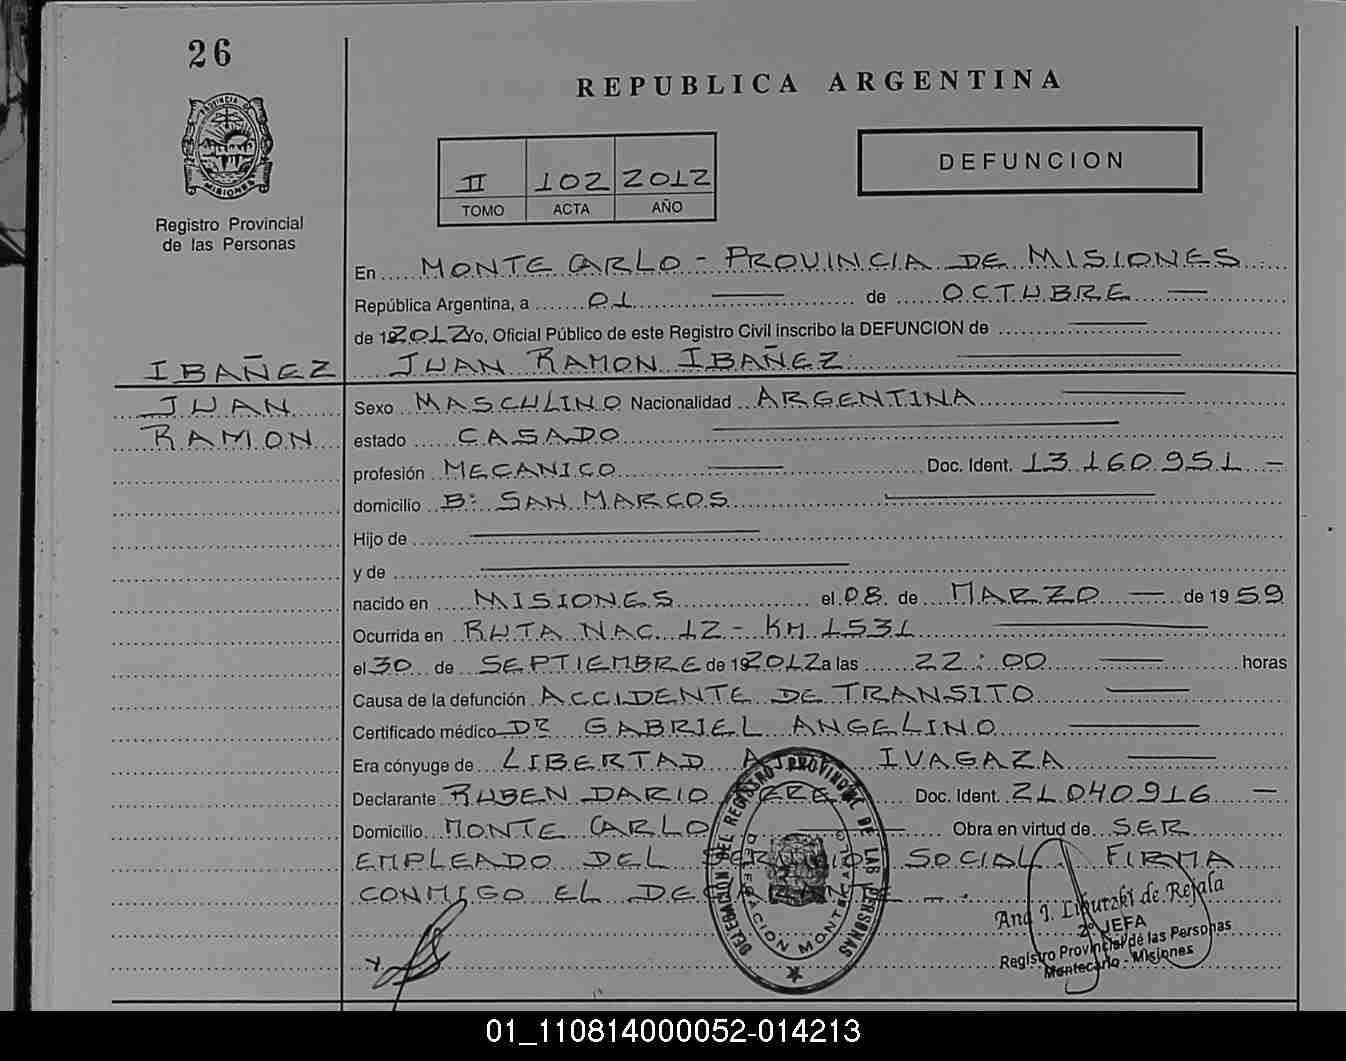 26
REPUBLICA ARGENTINA
PROVINCIA DE
MISIONES
II 102 2012
TOMO ACTA AÑO
DEFUNCION
Registro Provincial
de las Personas
En MONTE CARLO - PROVINCIA DE MISIONES
República Argentina, a 01 de OCTUBRE
de 192012 Yo, Oficial Público de este Registro Civil inscribo la DEFUNCION de
IBAÑEZ JUAN RAMON IBAÑEZ
JUAN Sexo MASCULINO Nacionalidad ARGENTINA
RAMON estado CASADO
profesión MECANICO Doc. Ident. 13.160.951 -
domicilio B: SAN MARCOS
Hijo de
y de
nacido en MISIONES el 08 de MARZO de 1959
Ocurrida en RUTA NAC. 12 - KM 1531
el 30 de SEPTIEMBRE de 192012 a las 22:00 horas
Causa de la defunción ACCIDENTE DE TRANSITO
Certificado médico DR GABRIEL ANGELINO
Era cónyuge de LIBERTAD IVAGAZA
Declarante RUBEN DARIO Doc. Ident. 21.040.916 -
Domicilio MONTE CARLO Obra en virtud de SER
EMPLEADO DEL SOCIAL. FIRMA
CONMIGO EL
DELEGACIÓN DEL REGISTRO PROVINCIAL DE LAS PERSONAS
DELEGACION MONTECARLO
Ana de Rejala
2º JEFA
Registro Provincial de las Personas
Montecarlo - Misiones
01_110814000052-014213